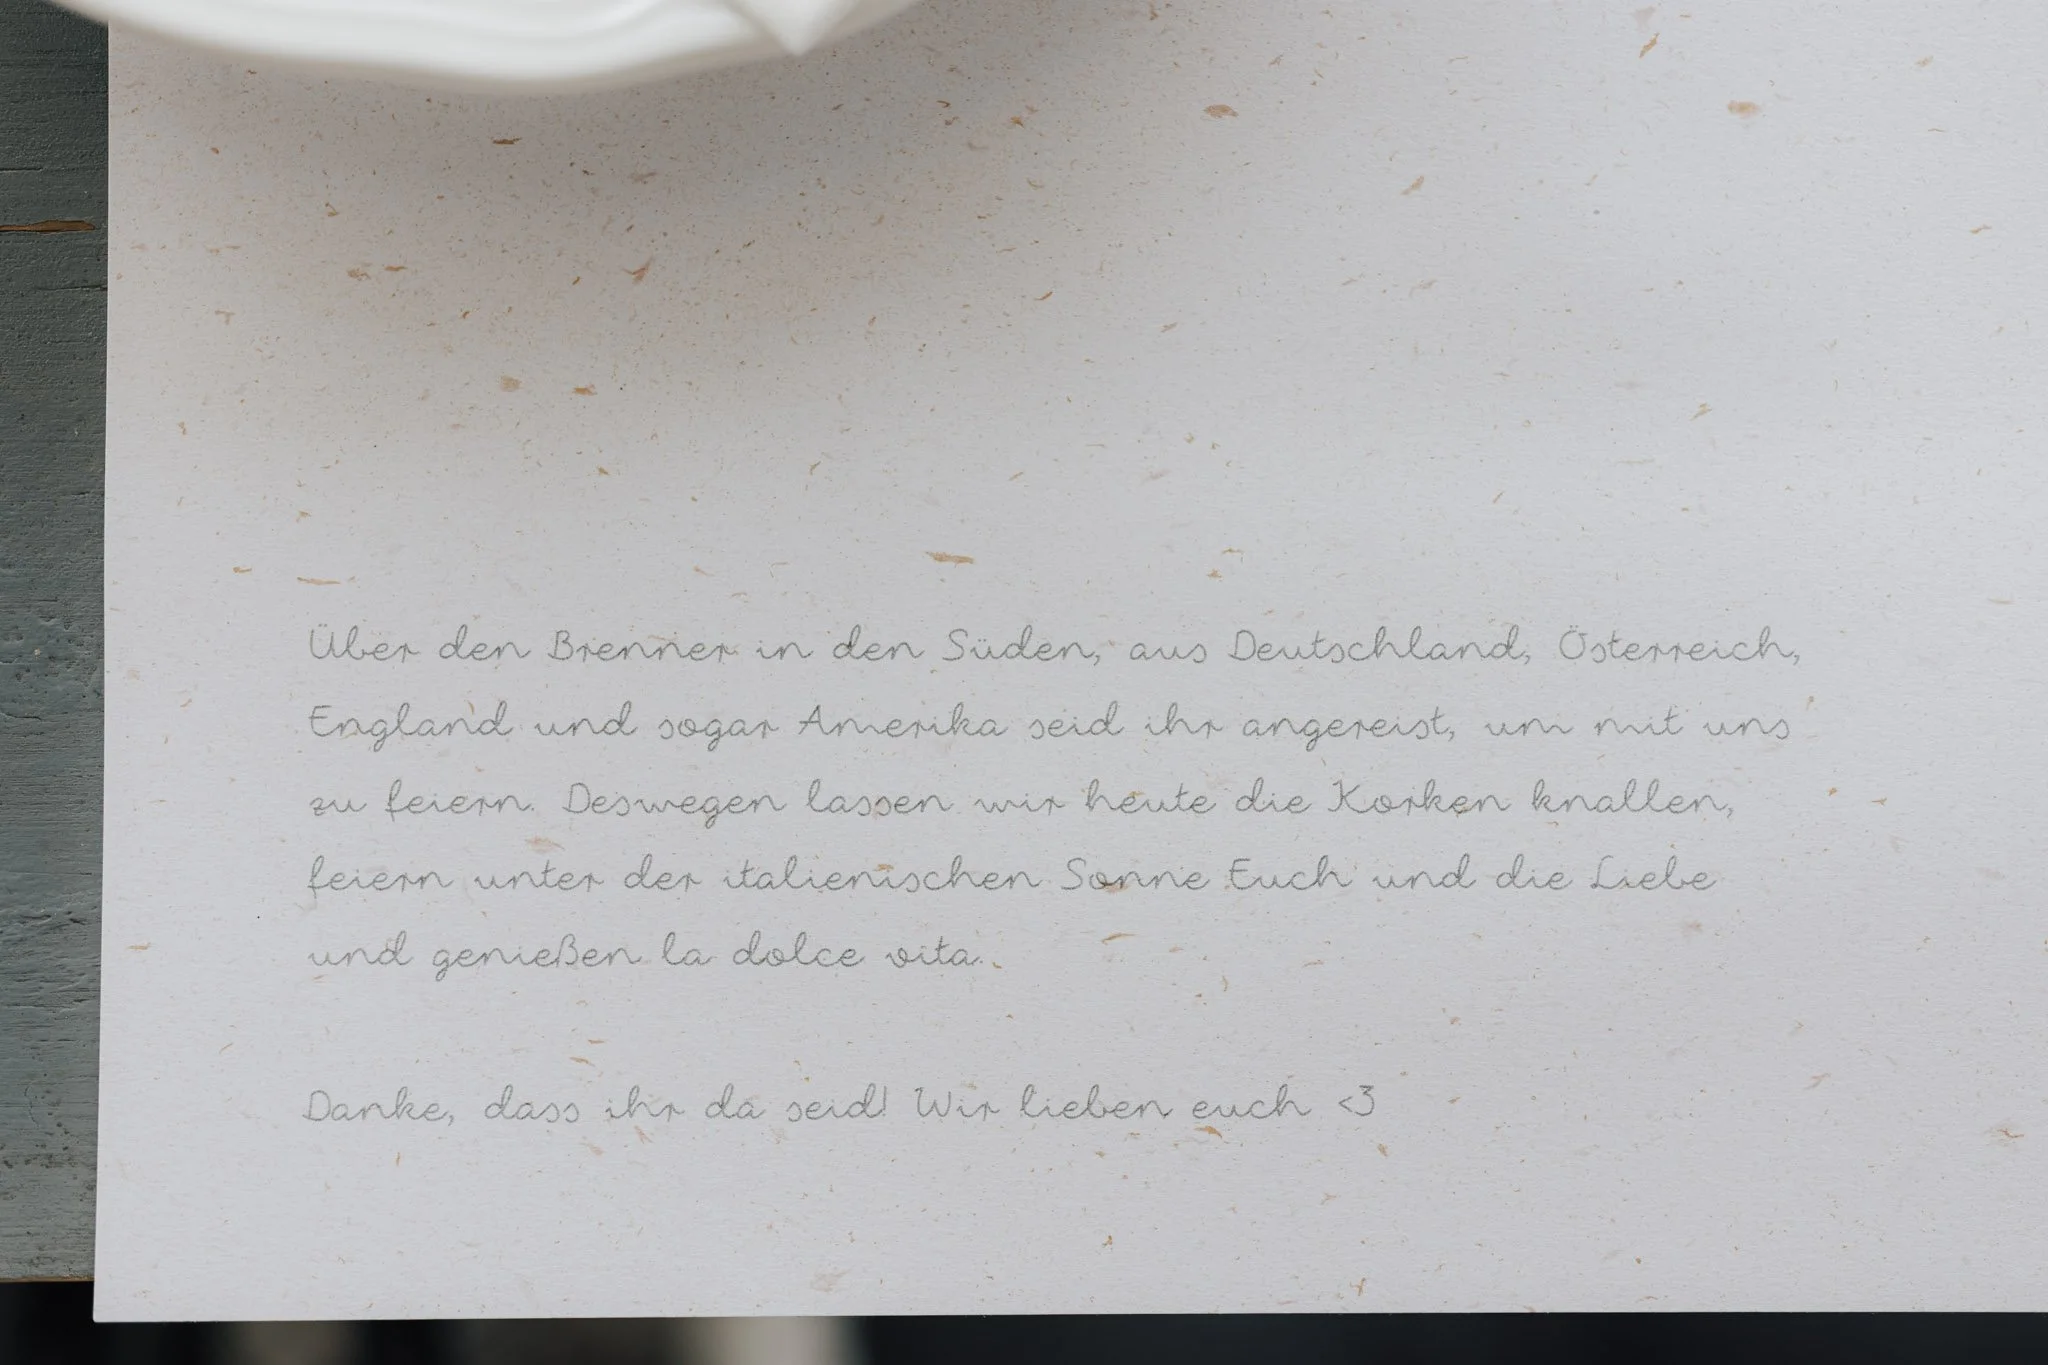 Über den Brenner in den Süden, aus Deutschland, Österreich,
England und sogar Amerika seid ihr angereist, um mit uns
zu feiern. Deswegen lassen wir heute die Korken knallen,
feiern unter der italienischen Sonne Euch und die Liebe
und genießen la dolce vita.
Danke, dass ihr da seid! Wir lieben euch <3